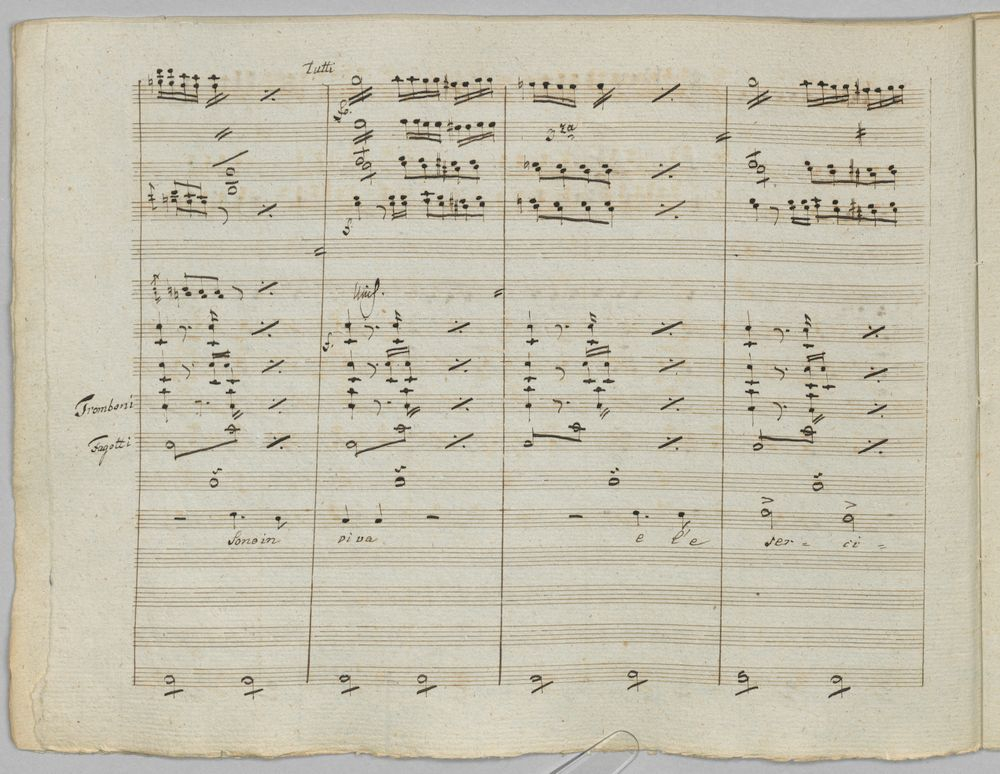 Tutti
3za
Unis.
Tromboni
Fagotti
Sono in viva e l'e ser = ci =